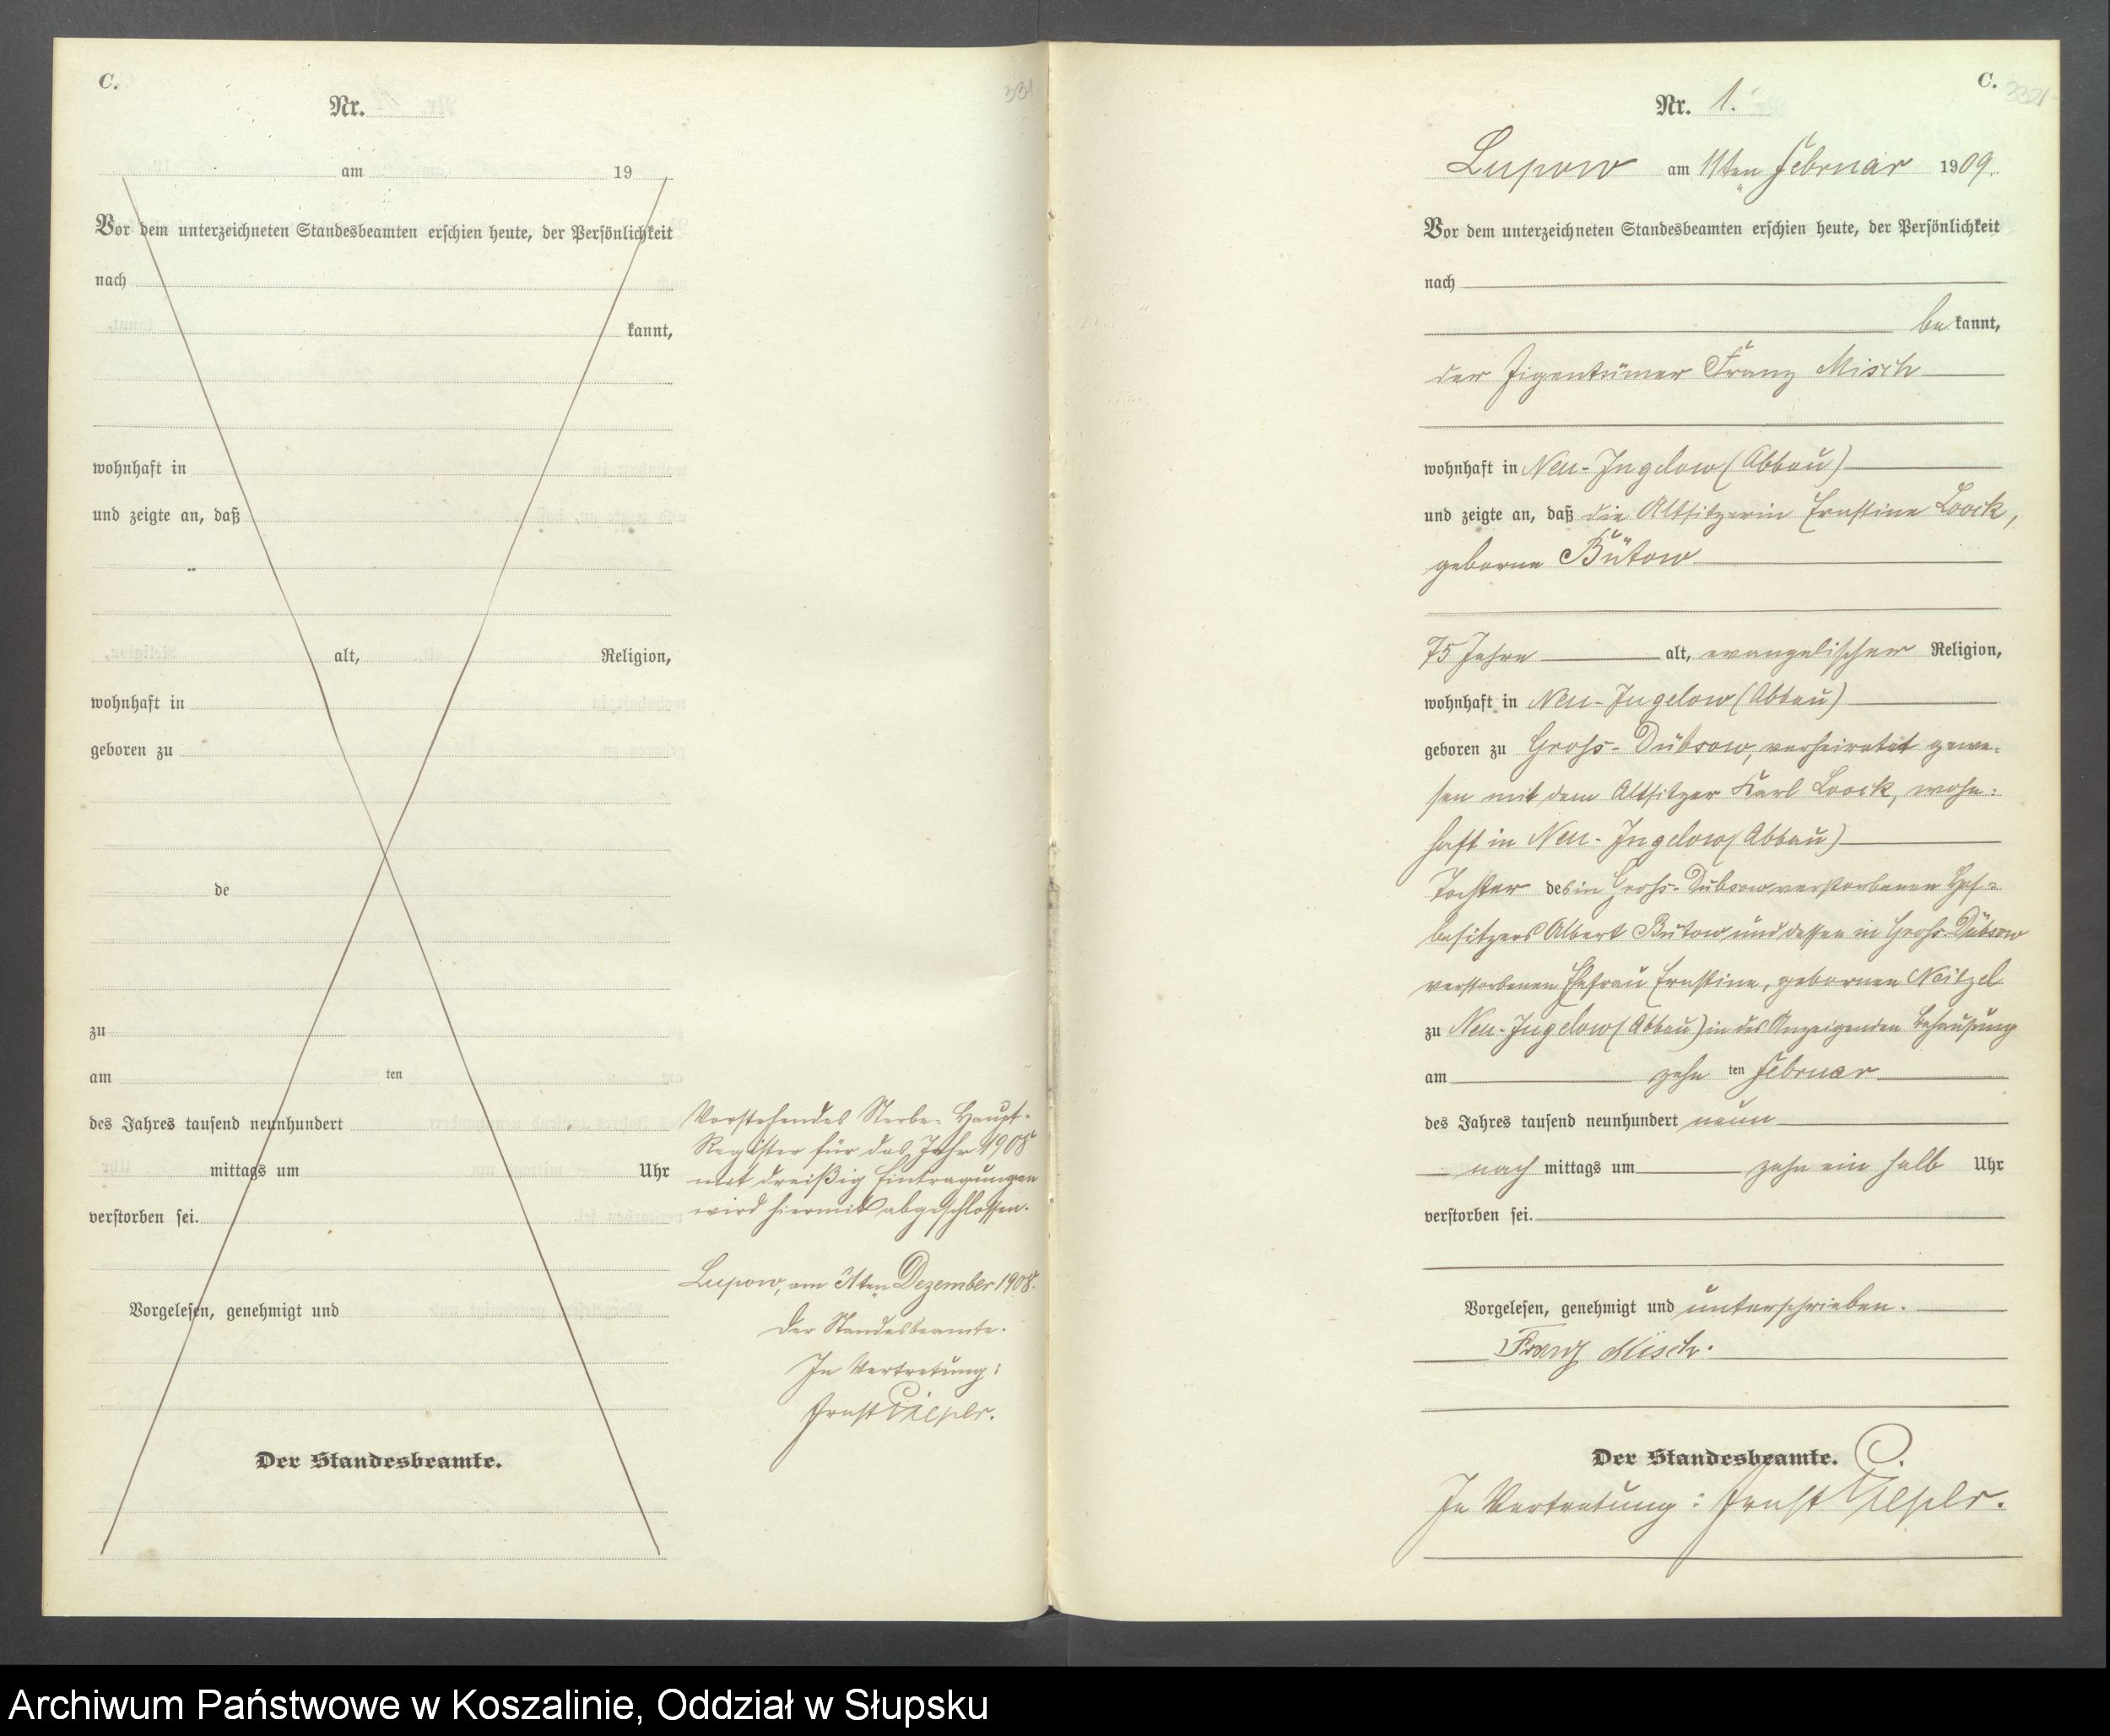 C.
331
Nr.
am 19
Vor dem unterzeichneten Standesbeamten erschien heute, der Persönlichkeit
nach
kannt,
wohnhaft in
und zeigte an, daß
alt, Religion,
wohnhaft in
geboren zu
de
zu
am ten
des Jahres tausend neunhundert
mittags um Uhr
verstorben sei.
Vorgelesen, genehmigt und
Der Standesbeamte.
Vorstehendes Sterbe-Haupt-
Register für das Jahr 1908
mit dreißig Eintragungen
wird hiermit abgeschlossen.
Lupow, am 31ten Dezember 1908.
Der Standesbeamte.
In Vertretung:
Ernst
C.
Nr. 1.
Lupow am 11ten Februar 1909.
Vor dem unterzeichneten Standesbeamten erschien heute, der Persönlichkeit
nach
be kannt,
der Eigentümer Franz Misch
wohnhaft in Neu-Jugelow (Abbau)
und zeigte an, daß die Altsitzerin Ernstine Loock,
geborne Bütow
75 Jahre alt, evangelischer Religion,
wohnhaft in Neu-Jugelow (Abbau)
geboren zu Groß-Dübsow, verheiratet gewe-
sen mit dem Altsitzer Karl Loock, wohn-
haft in Neu-Jugelow (Abbau)
Tochter des in Groß-Dübsow verstorbenen Hof-
besitzers Albert Bütow und dessen in Groß-Dübsow
verstorbenen Ehefrau Ernstine, gebornen Neitzel
zu Neu-Jugelow (Abbau) in des Anzeigenden Behausung
am zehn ten Februar
des Jahres tausend neunhundert neun
nach mittags um zehn ein halb Uhr
verstorben sei.
Vorgelesen, genehmigt und unterschrieben.
Franz Misch.
Der Standesbeamte.
In Vertretung: Ernst
Archiwum Państwowe w Koszalinie, Oddział w Słupsku